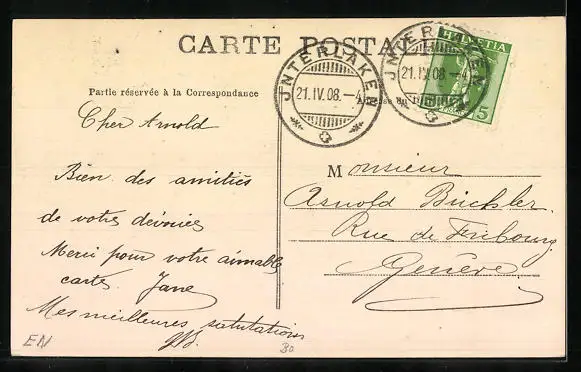 CARTE POSTALE
HELVETIA
5
JNTERLAKEN
21.IV.08.–4
JNTERLAKEN
21.IV.08.–4
Partie réservée à la Correspondance
Cher Arnold
Bien des amitiés
de votre dévouée
Merci pour votre aimable
carte. Jane
Mes meilleures salutations
Monsieur
Arnold Büchler.
Rue de Fribourg
Genève
EN
30